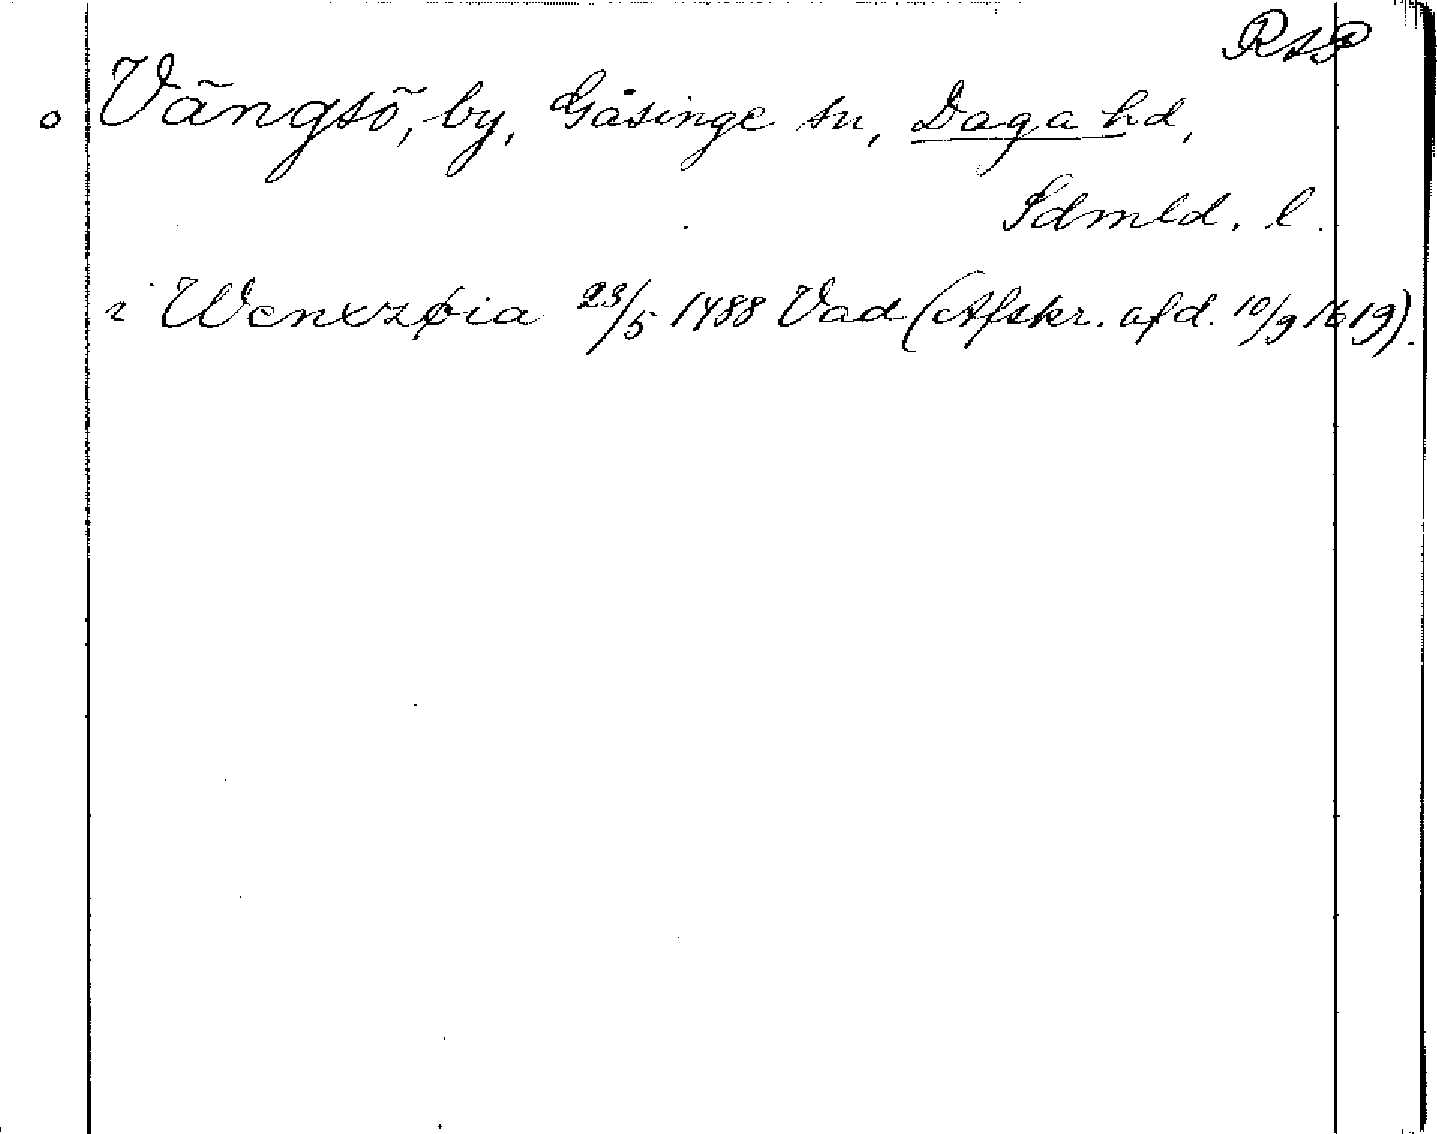 RAP
o Vängsö, by, Gåsinge sn, Daga hd,
Sdmld. l.
i Wenxzøia 23/5 1488 Vad (Afskr. afd. 10/9 1619).